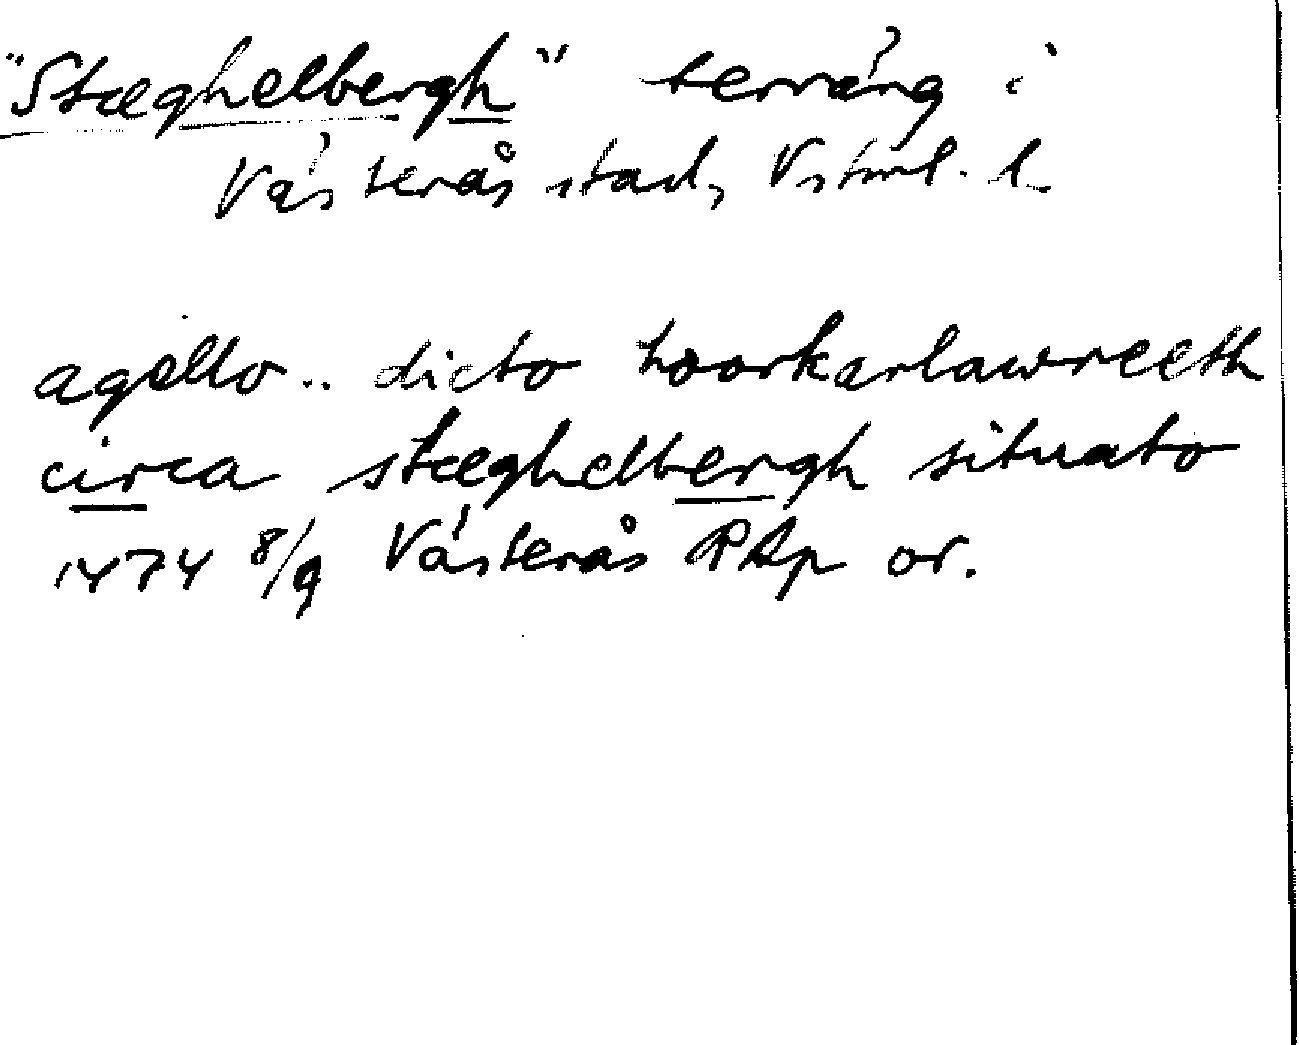 "Stæghelbergh" terräng i
Västerås stad, Vstml. l.
agello .. dicto toorkarlawreeth
circa stæghelbergh situato
1474 8/9 Västerås RAp or.